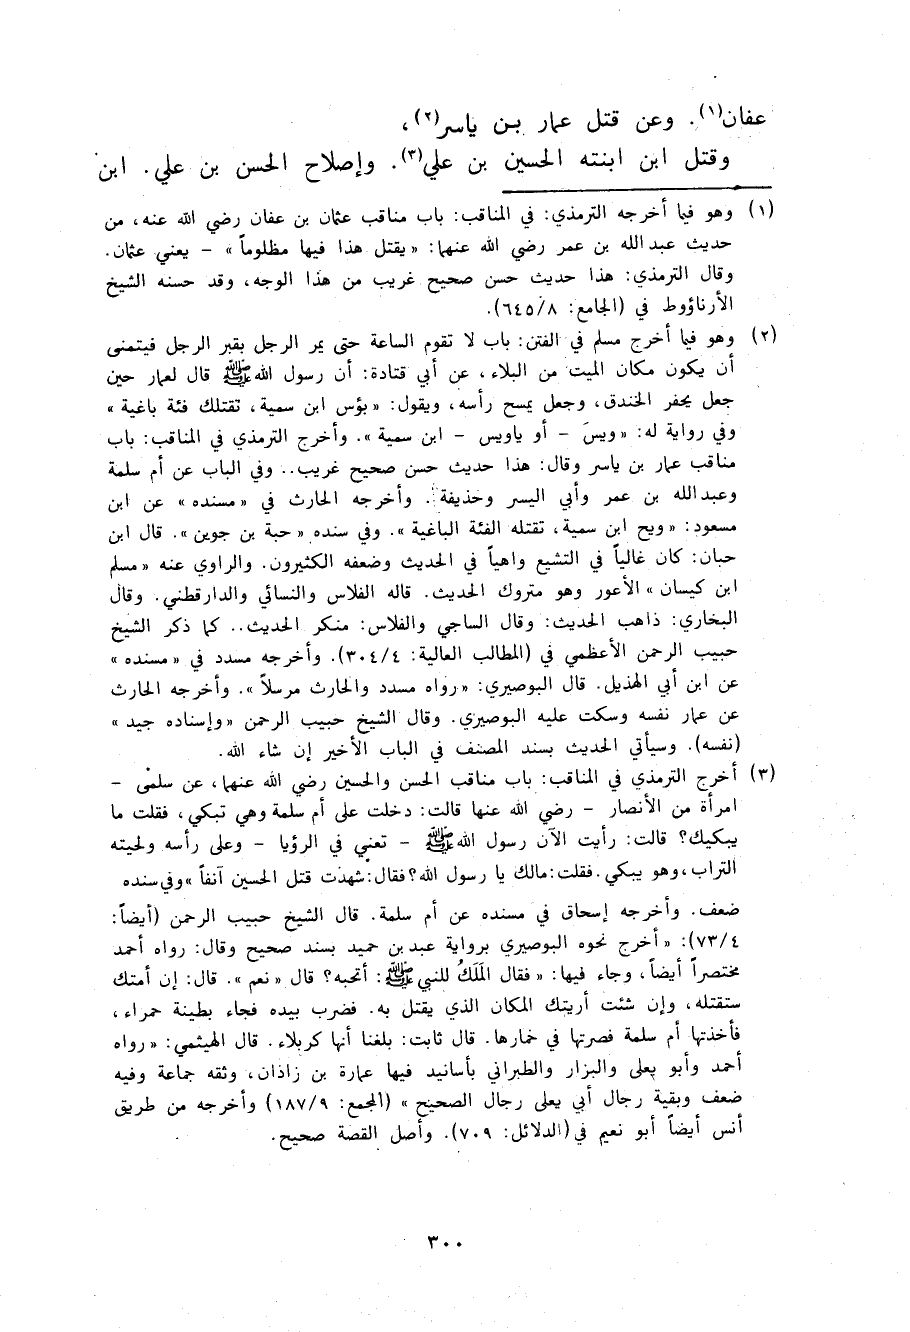 عفان(١). وعن قتل عمار بن ياسر(٢)،
وقتل ابن ابنته الحسين بن علي(٣). وإصلاح الحسن بن علي. ابن
(١) وهو فيما أخرجه الترمذي: في المناقب: باب مناقب عثمان بن عفان رضي الله عنه، من
حديث عبد الله بن عمر رضي الله عنهما: «يقتل هذا فيها مظلوماً» – يعني عثمان.
وقال الترمذي: هذا حديث حسن صحيح غريب من هذا الوجه، وقد حسنه الشيخ
الأرناؤوط في (الجامع: ٦٤٥/٨).
(٢) وهو فيما أخرج مسلم في الفتن: باب لا تقوم الساعة حتى يمر الرجل بقبر الرجل فيتمنى
أن يكون مكان الميت من البلاء، عن أبي قتادة: أن رسول الله ﷺ قال لعمار حين
جعل يحفر الخندق، وجعل يمسح رأسه، ويقول: «بؤس ابن سمية، تقتلك فئة باغية»
وفي رواية له: «ويسَ – أو ياويس – ابن سمية». وأخرج الترمذي في المناقب: باب
مناقب عمار بن ياسر وقال: هذا حديث حسن صحيح غريب.. وفي الباب عن أم سلمة
وعبد الله بن عمر وأبي اليسر وحذيفة. وأخرجه الحارث في «مسنده» عن ابن
مسعود: «ويح ابن سمية، تقتله الفئة الباغية». وفي سنده «حبة بن جوين». قال ابن
حبان: كان غالياً في التشيع واهياً في الحديث وضعفه الكثيرون. والراوي عنه «مسلم
ابن كيسان» الأعور وهو متروك الحديث. قاله الفلاس والنسائي والدارقطني. وقال
البخاري: ذاهب الحديث: وقال الساجي والفلاس: منكر الحديث.. كما ذكر الشيخ
حبيب الرحمن الأعظمي في (المطالب العالية: ٣٠٤/٤). وأخرجه مسدد في «مسنده»
عن ابن أبي الهذيل. قال البوصيري: «رواه مسدد والحارث مرسلاً». وأخرجه الحارث
عن عمار نفسه وسكت عليه البوصيري. وقال الشيخ حبيب الرحمن «وإسناده جيد»
(نفسه). وسيأتي الحديث بسند المصنف في الباب الأخير إن شاء الله.
(٣) أخرج الترمذي في المناقب: باب مناقب الحسن والحسين رضي الله عنهما، عن سلمى –
امرأة من الأنصار – رضي الله عنها قالت: دخلت على أم سلمة وهي تبكي، فقلت ما
يبكيك؟ قالت: رأيت الآن رسول الله ﷺ – تعني في الرؤيا – وعلى رأسه ولحيته
التراب، وهو يبكي. فقلت: مالك يا رسول الله؟ فقال: شهدت قتل الحسين آنفاً» وفي سنده
ضعف. وأخرجه إسحاق في مسنده عن أم سلمة. قال الشيخ حبيب الرحمن (أيضاً:
٧٣/٤): «أخرج نحوه البوصيري برواية عبد بن حميد بسند صحيح وقال: رواه أحمد
مختصراً أيضاً، وجاء فيها: «فقال المَلَكُ للنبي ﷺ: أتحبه؟ قال «نعم». قال: إن أمتك
ستقتله، وإن شئت أريتك المكان الذي يقتل به. فضرب بيده فجاء بطينة حمراء،
فأخذتها أم سلمة فصرتها في خمارها. قال ثابت: بلغنا أنها كربلاء. قال الهيثمي: «رواه
أحمد وأبو يعلى والبزار والطبراني بأسانيد فيها عمارة بن زاذان، وثقه جماعة وفيه
ضعف وبقية رجال أبي يعلى رجال الصحيح» (المجمع: ١٨٧/٩) وأخرجه من طريق
أنس أيضاً أبو نعيم في (الدلائل: ٧٠٩). وأصل القصة صحيح.
٣٠٠